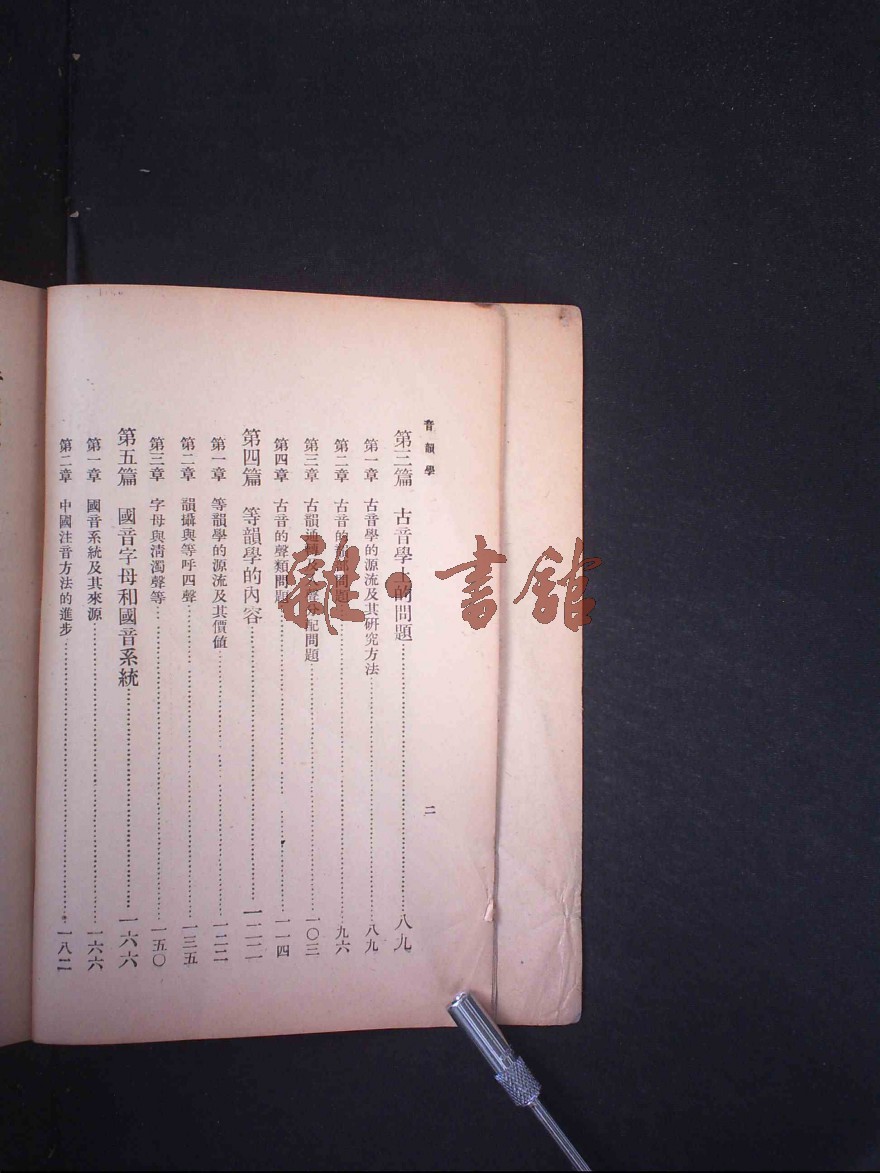 音韻學
二
第三篇 古音學上的問題……八九
第一章 古音學的源流及其研究方法……八九
第二章 古音的韻部問題……九六
第三章 古韻通轉及入聲分配問題……一〇三
第四章 古音的聲類問題……一一四
第四篇 等韻學的內容……一二二
第一章 等韻學的源流及其價值……一二二
第二章 韻攝與等呼四聲……一三五
第三章 字母與清濁聲等……一五〇
第五篇 國音字母和國音系統……一六六
第一章 國音系統及其來源……一六六
第二章 中國注音方法的進步……一八二
雜·書館